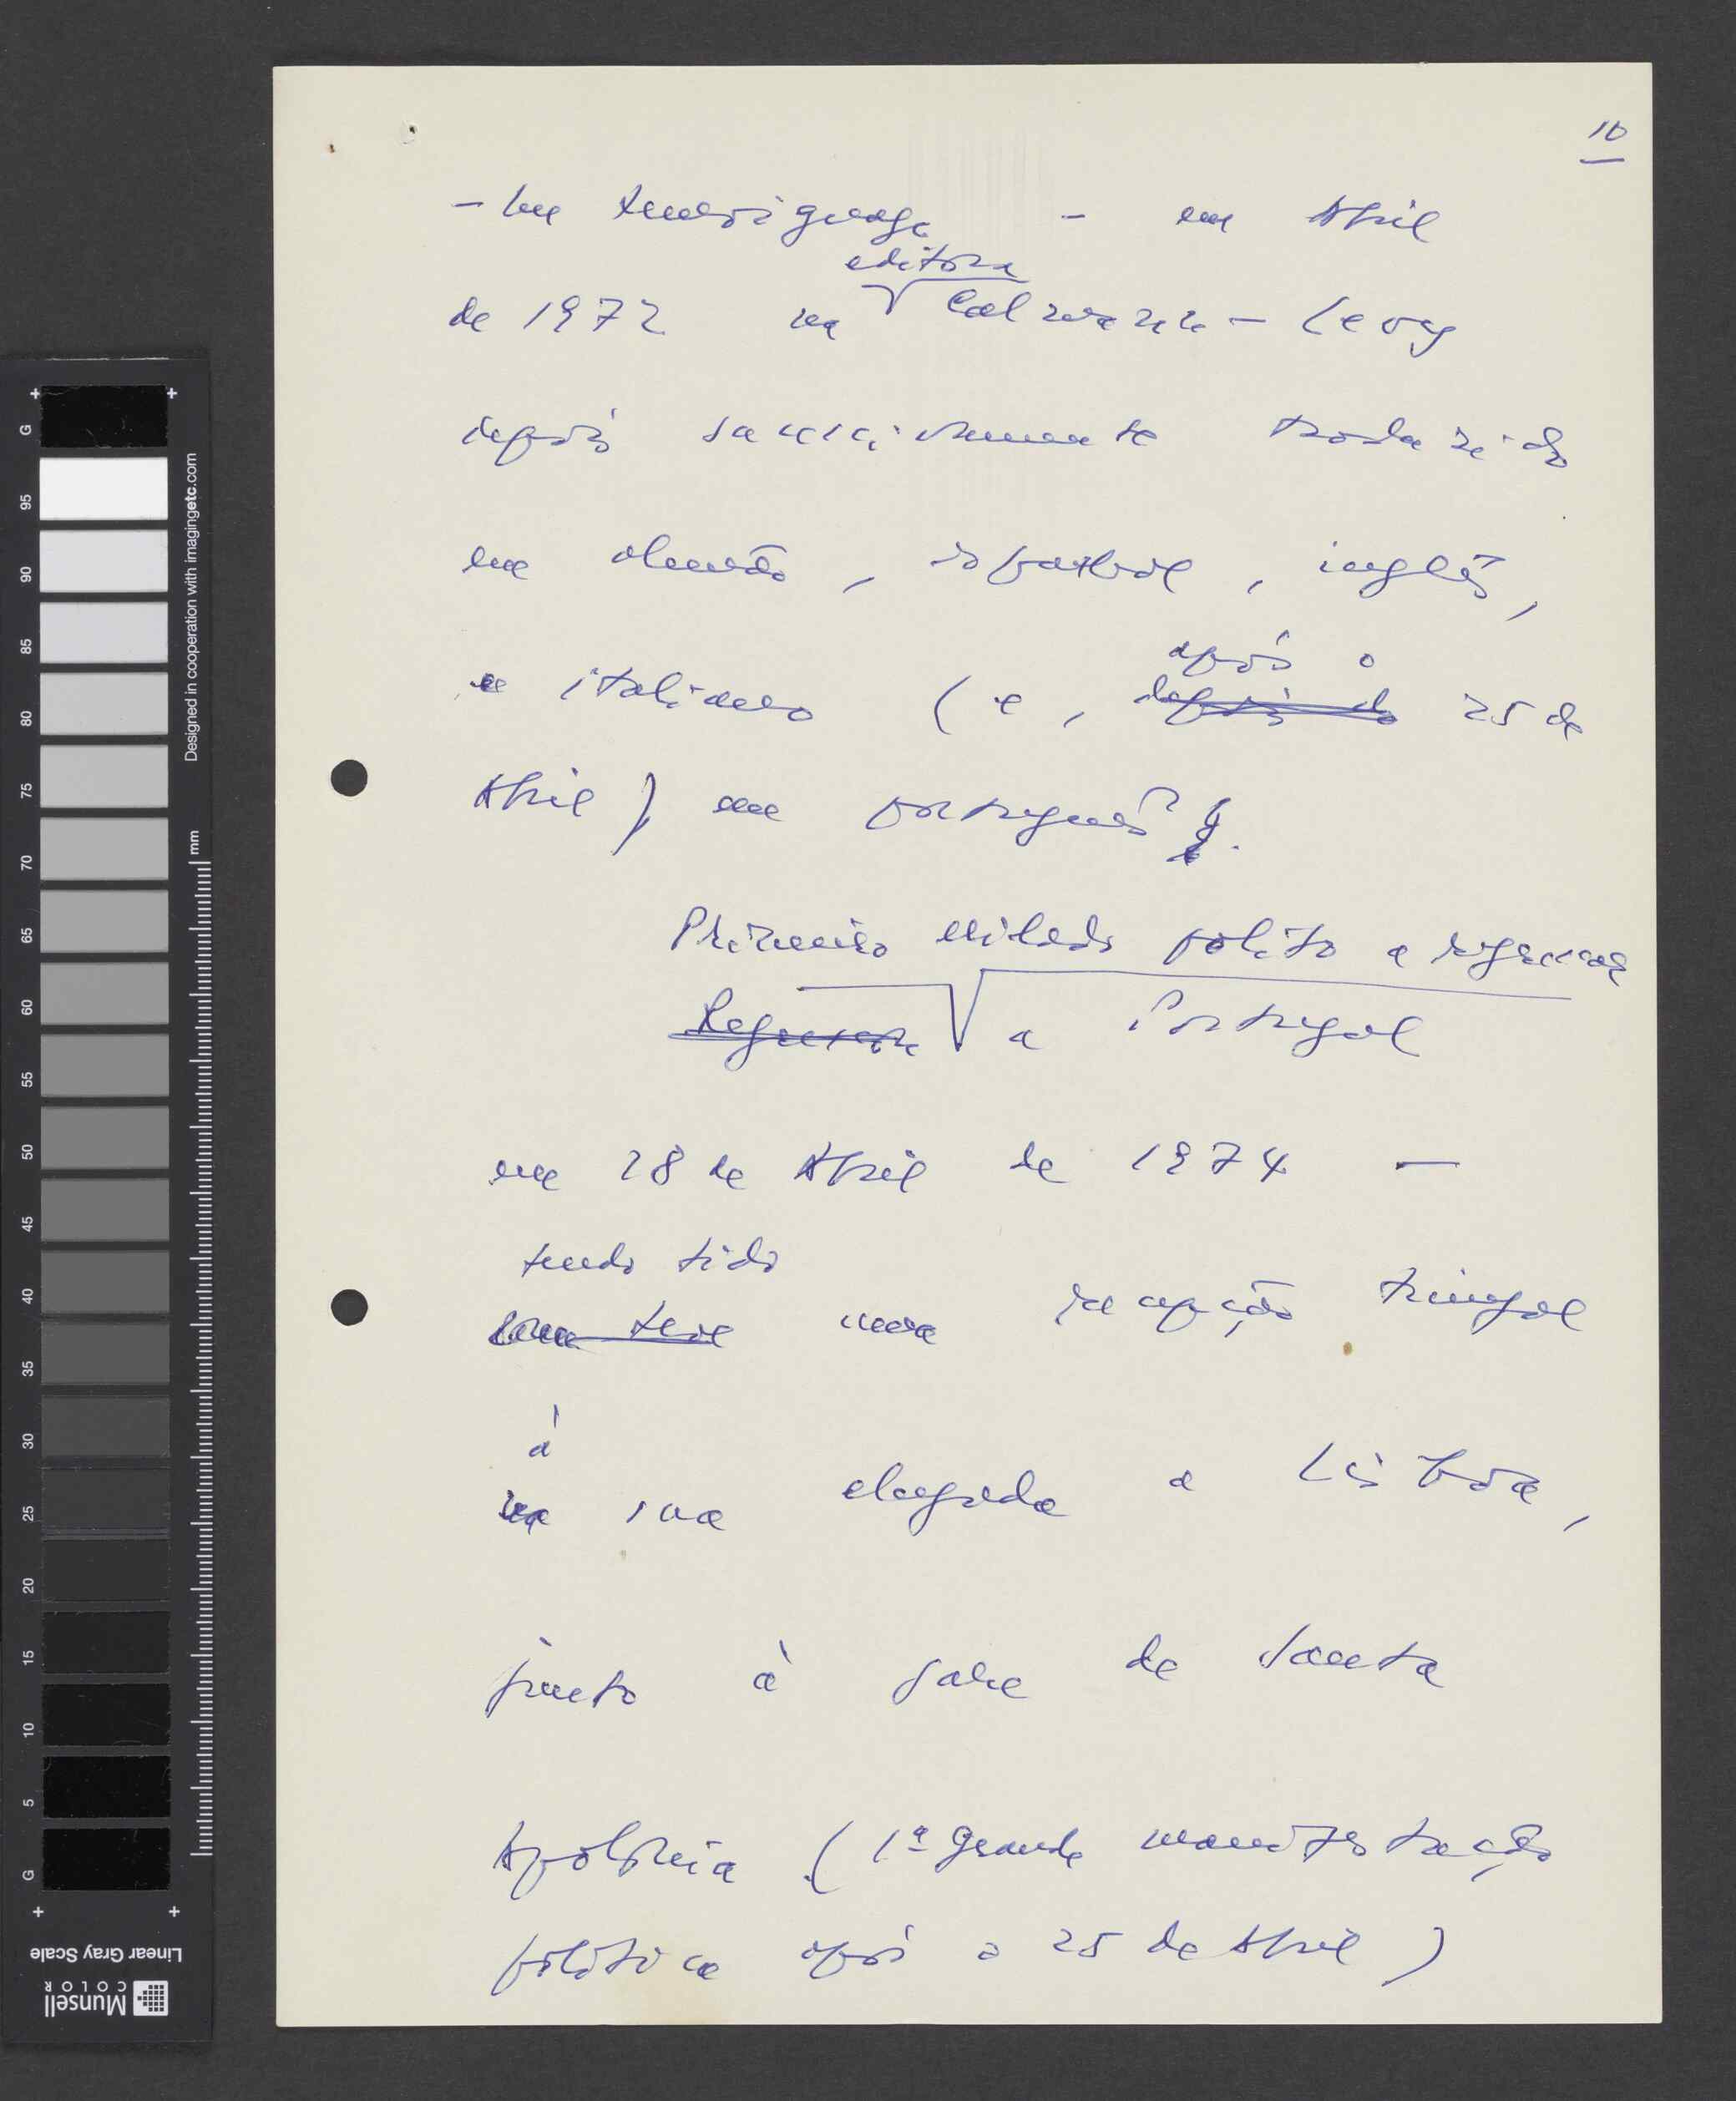 10
- Un témoignage - em Abril
editora
de 1972 na Calmann-Levy
depois sucessivamente traduzido
em alemão, espanhol, inglês,
após o
e italiano (e, depois do 25 de
Abril) em português.
Primeiro exilado político a regressar
Regressa a Portugal
em 28 de Abril de 1974 —
tendo tido
teve uma recepção triunfal
à
na sua chegada a Lisboa,
junto à gare de Santa
Apolónia (1ª grande manifestação
política após o 25 de Abril)
G
95
90
85
80
75
70
65
60
55
50
45
40
35
30
25
20
15
10
5
G
Designed in cooperation with imagingetc.com
mm
Linear Gray Scale
Munsell
COLOR